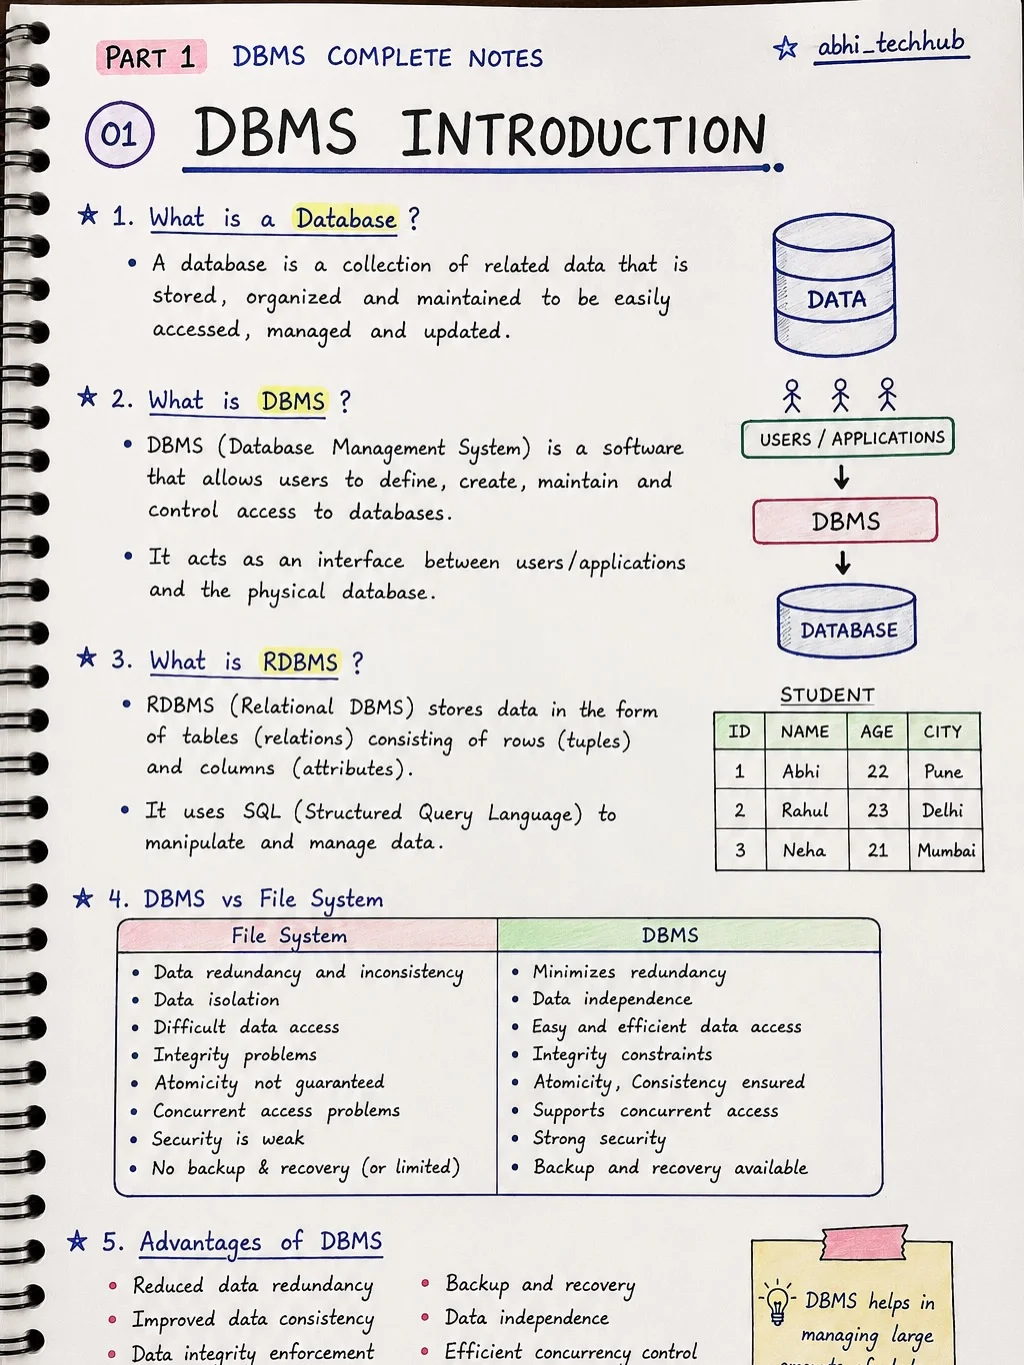 PART 1 DBMS COMPLETE NOTES
abhi_techhub
01 DBMS INTRODUCTION
1. What is a Database ?
• A database is a collection of related data that is
stored, organized and maintained to be easily
accessed, managed and updated.
DATA
2. What is DBMS ?
• DBMS (Database Management System) is a software
that allows users to define, create, maintain and
control access to databases.
• It acts as an interface between users/applications
and the physical database.
USERS / APPLICATIONS
DBMS
DATABASE
3. What is RDBMS ?
• RDBMS (Relational DBMS) stores data in the form
of tables (relations) consisting of rows (tuples)
and columns (attributes).
• It uses SQL (Structured Query Language) to
manipulate and manage data.
STUDENT
ID NAME AGE CITY
1 Abhi 22 Pune
2 Rahul 23 Delhi
3 Neha 21 Mumbai
4. DBMS vs File System
File System DBMS
• Data redundancy and inconsistency • Minimizes redundancy
• Data isolation • Data independence
• Difficult data access • Easy and efficient data access
• Integrity problems • Integrity constraints
• Atomicity not guaranteed • Atomicity, Consistency ensured
• Concurrent access problems • Supports concurrent access
• Security is weak • Strong security
• No backup & recovery (or limited) • Backup and recovery available
5. Advantages of DBMS
• Reduced data redundancy • Backup and recovery
• Improved data consistency • Data independence
• Data integrity enforcement • Efficient concurrency control
DBMS helps in
managing large